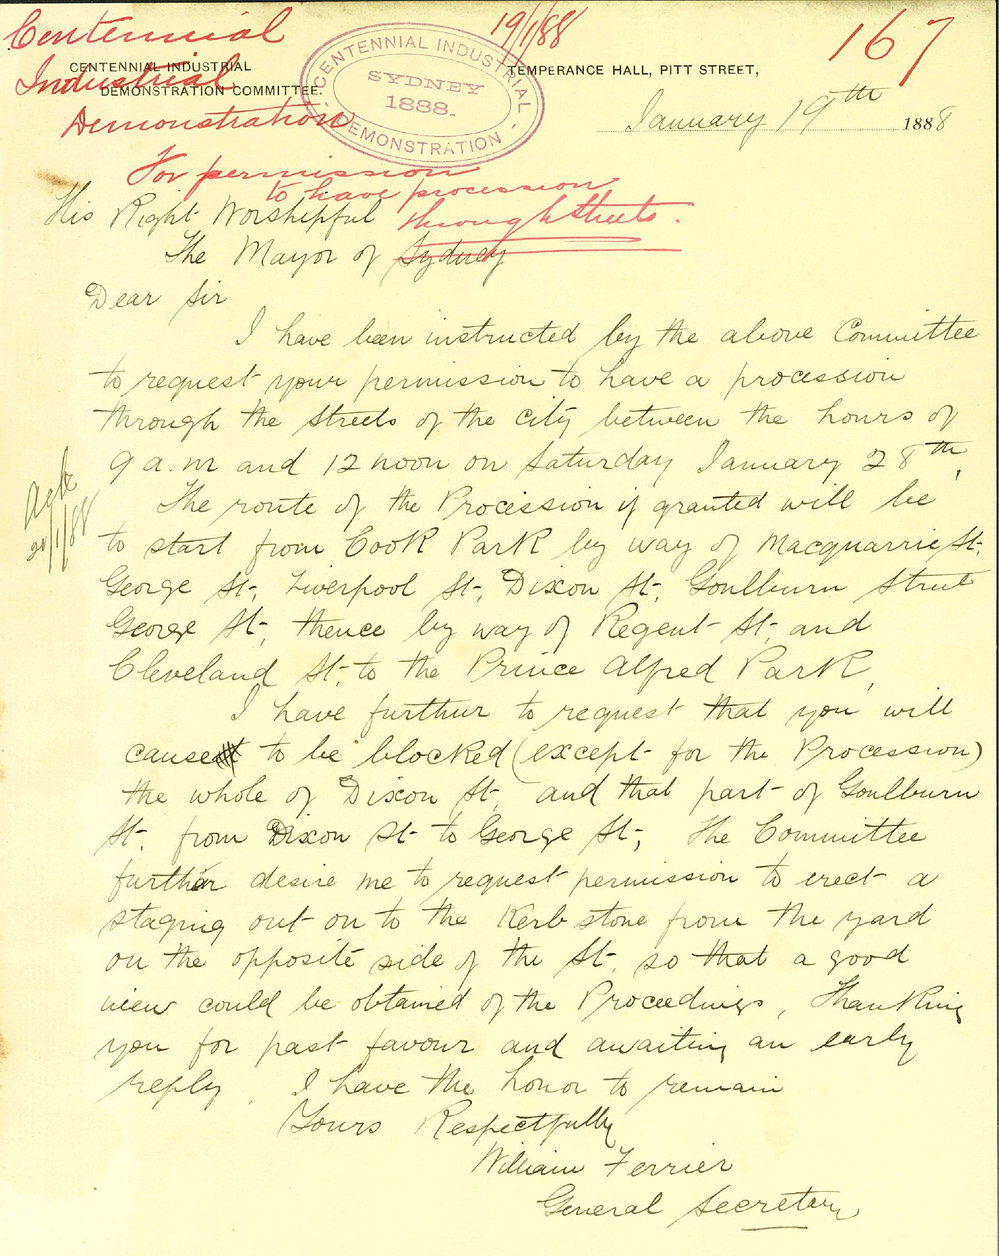 Centennial
Industrial
Demonstration
19/1/88
167
CENTENNIAL INDUSTRIAL
DEMONSTRATION COMMITTEE.
CENTENNIAL INDUSTRIAL
SYDNEY
1888.
DEMONSTRATION
TEMPERANCE HALL, PITT STREET,
January 19th 1888
For permission
to have procession
through streets.
His Right Worshipful
The Mayor of Sydney
Dear Sir
I have been instructed by the above Committee
to request your permission to have a procession
through the streets of the city between the hours of
9 a.m and 12 noon on Saturday January 28th,
The route of the Procession if granted will be
to start from Cook Park by way of Macquarrie St,
George St, Liverpool St, Dixon St, Goulburn Street
George St, thence by way of Regent St, and
Cleveland St, to the Prince Alfred Park,
I have furthur to request that you will
cause to be blocked (except for the Procession)
the whole of Dixon St, and that part of Goulburn
St. from Dixon St to George St, The Committee
further desire me to request permission to erect a
staging out on to the Kerb stone from the yard
on the opposite side of the St, so that a good
view could be obtained of the Proceedings, Thanking
you for past favour and awaiting an early
reply. I have the honor to remain
Yours Respectfully
William Ferrier
General Secretary
Ack
20/1/88